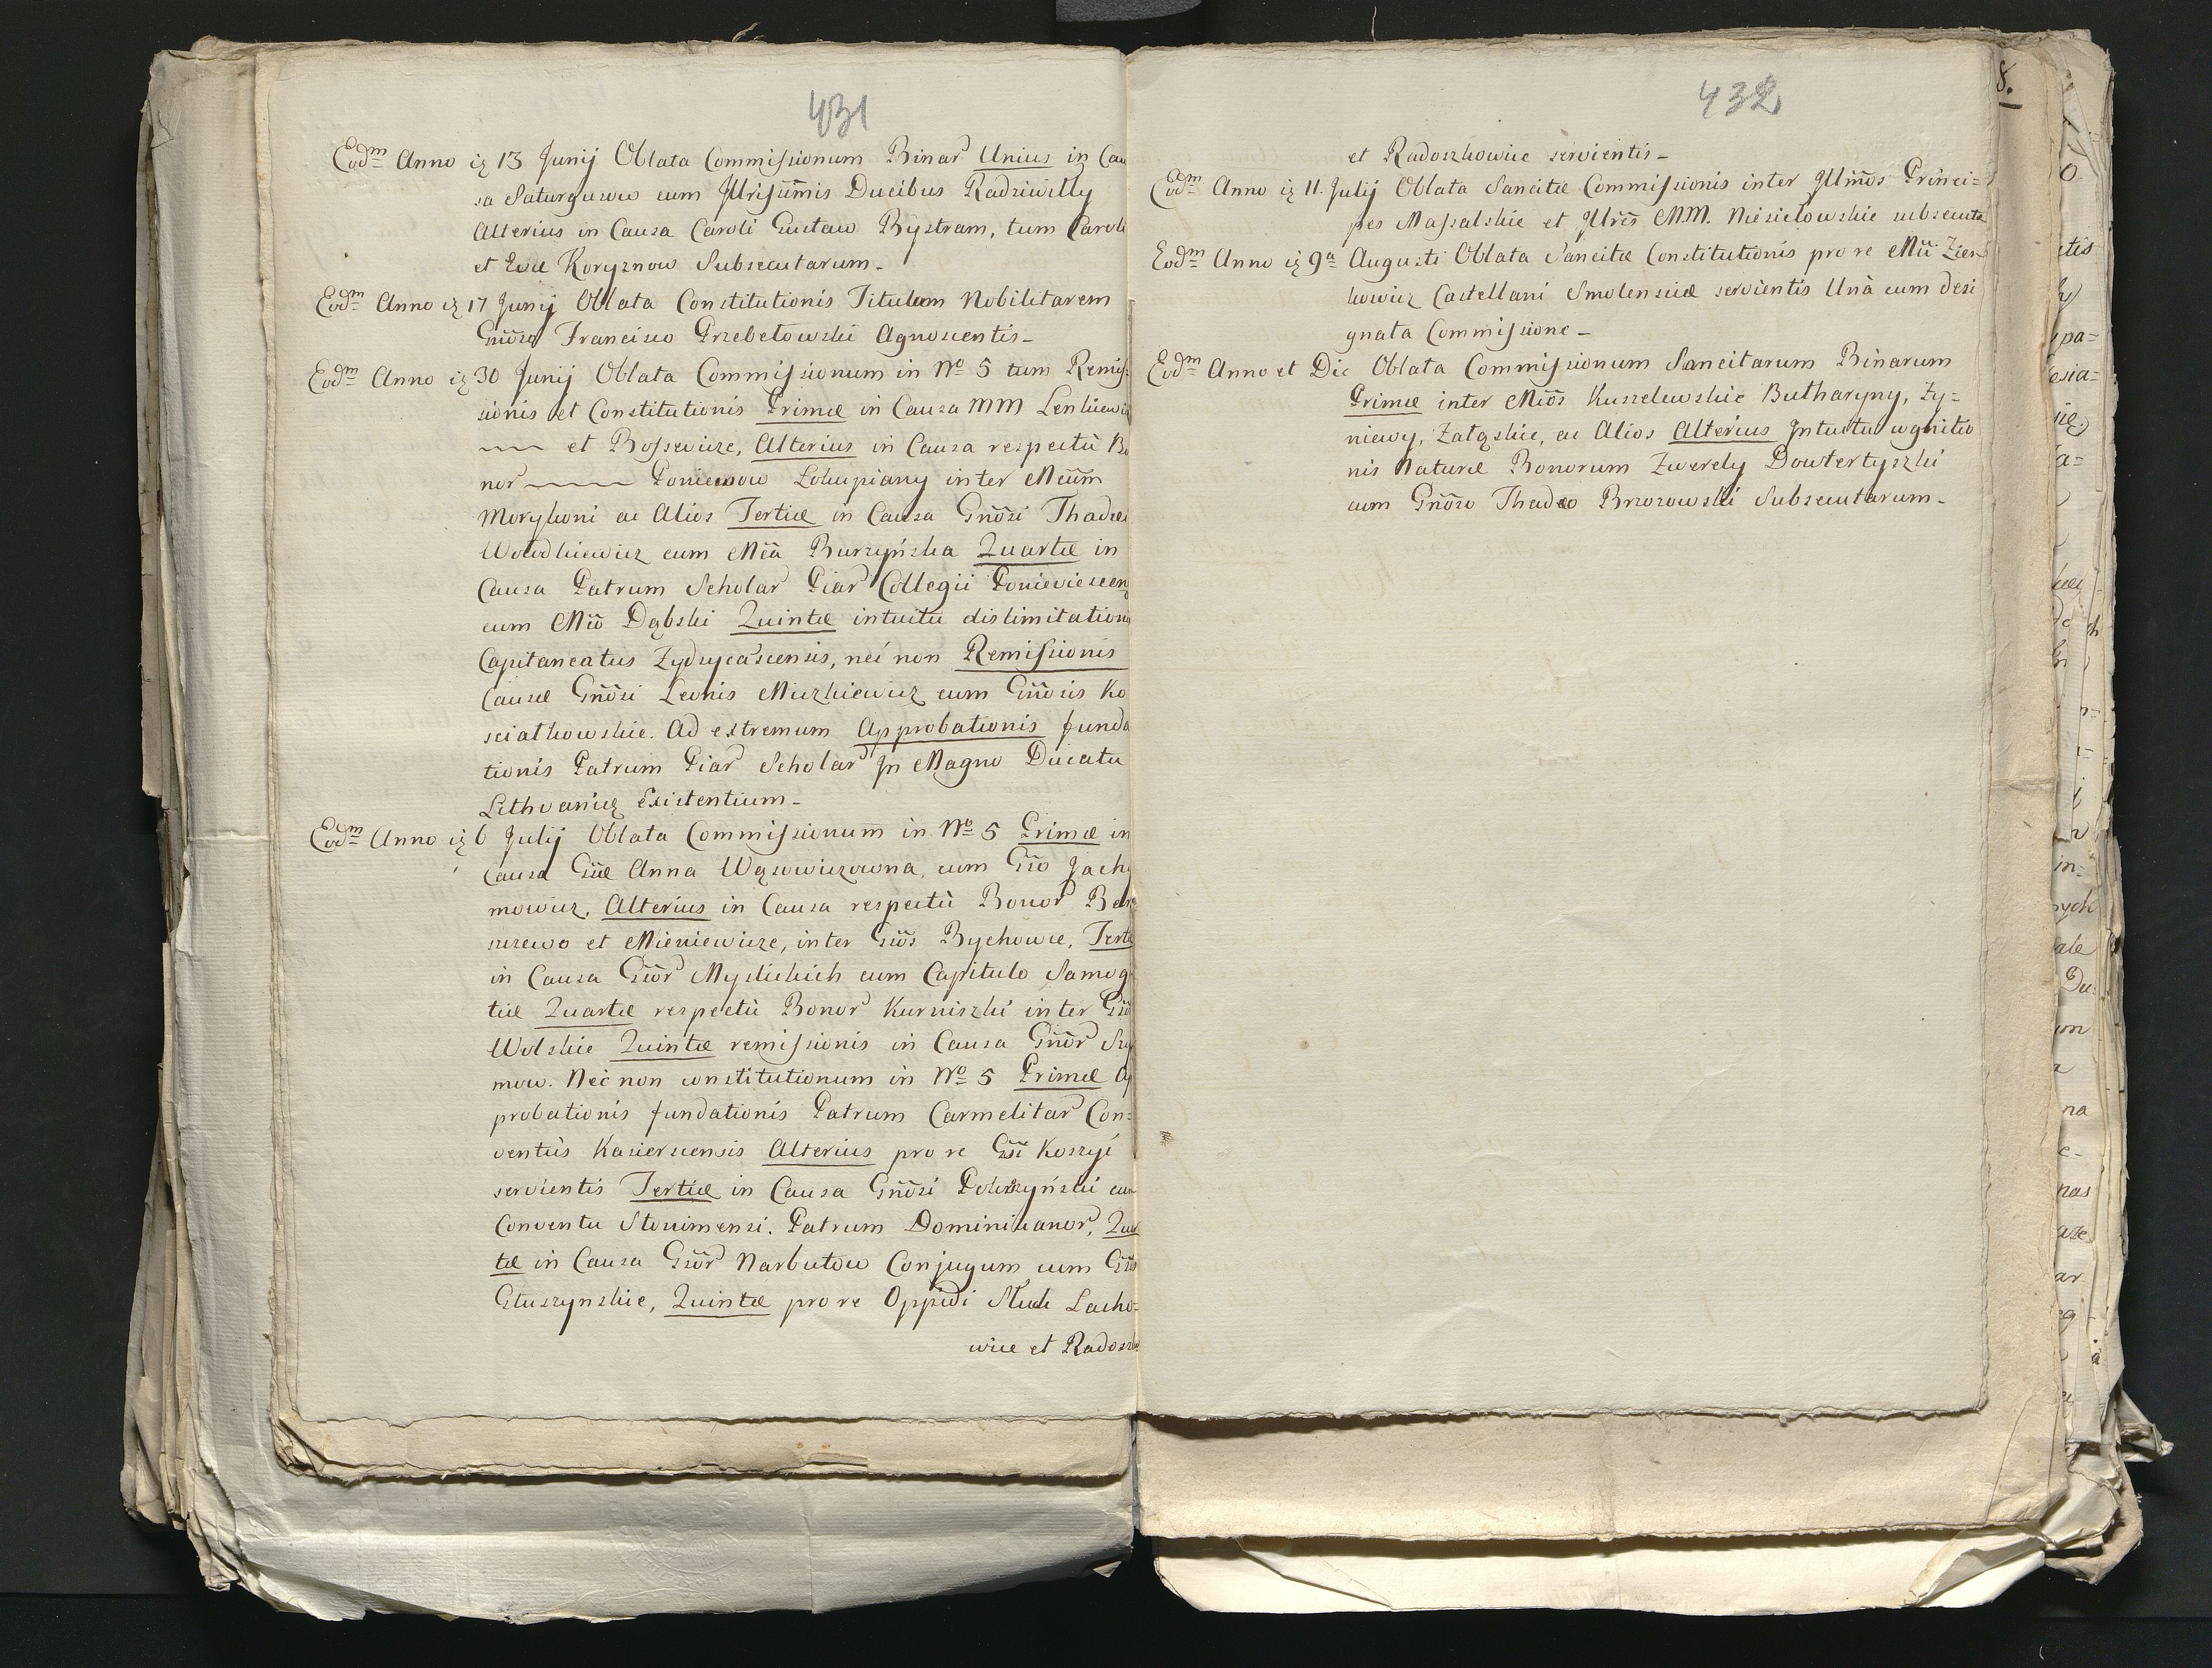 431
Eodm Anno ię 13 Junij Oblata Commissionum Binar Unius in Cau
sa Saturgowo cum Jllrissimis Ducibus Radziwilly
Alterius in Causa Caroli Gustaw Bystram, tum Caroli
et Evæ Koryznow Subsecutarum.
Eodm Anno ię 17 Junij Oblata Constitutionis Titulum Nobilitarem
Gnoso Francisco Grzebetowski Agnoscentis
Eodm Anno ię 30 Junij Oblata Commissionum in No 5 tum Remis
sionis et Constitutionis Primæ in Causa MM Lenkiewi
et Bossewicze, Alterius in Causa respectu Bo
nor Poniemow Lokupiany inter Mcum
Morykoni ac Alios Tertiæ in Causa Gnosi Thadæi
Wolodkiewicz cum Mca Burzyńska Quartæ in
Causa Patrum Scholar Piar Collegii Ponieviecen
cum Mco Dąbski Quintæ intuitu dislimitationis
Capitaneatus Zydycascensis, nec non Remissionis
Causæ Gnosi Leonis Miczkiewicz cum Gnosis Ko
sciatkowskie. Ad extremum Approbationis funda
tionis Patrum Piar Scholar Jn Magno Ducatu
Lithvanię Existentium
Eodm Anno ię 6 Julij Oblata Commissionum in No 5 Primæ in
Causa Gsæ Anna Wąsowiczowna, cum Gso Jach
mowicz, Alterius in Causa respectu Bonor
surewo et Mieniewicze, inter Gsos Bychowce, Terti
in Causa Gsor Myslickich cum Capitulo Samog
tiæ Quartæ respectu Bonor Kurniszki inter Gso
Wolskie Quintæ remissionis in Causa Gnor
mow. Nec non constitutionum in No 5 Primæ Ap
probationis fundationis Patrum Carmelitar Con=
ventus Kasiersensis Alterius pro re Gsi Koszyi
servientis Tertiæ in Causa Gnosi cum
Conventu Stonimensi. Patrum Dominicanor, Quar
tæ in Causa Gsor Narbutow Conjugum cum Gsos
Gluszynskie, Quintæ pro re Oppidi Lacho=
wice et Radoszk
432
et Radoszkowice servientis
Eodm Anno ię 11. Julij Oblata Sancitæ Commissionis inter Jllmos Princi=
pes Massalskie et Jllres MM. Niesiolowskie subsecuta
Eodm Anno ię 9a Augusti Oblata Sancitæ Constitutionis pro re Mci Zien
kowicz Castellani Smolensciæ servientis Unà cum desi
gnata Commissione
Eodm Anno et Die Oblata Commissionum Sancitarum Binarum
Primæ inter Mcos Kuszelewskie Butharyny, Zy=
niewy, Zaląskie, ac Alios Alterius Jntuitu cognitio
nis Naturæ Bonorum Zwerely Dowtertyszki
cum Gnoso Thadeo Brzozowski Subsecutarum